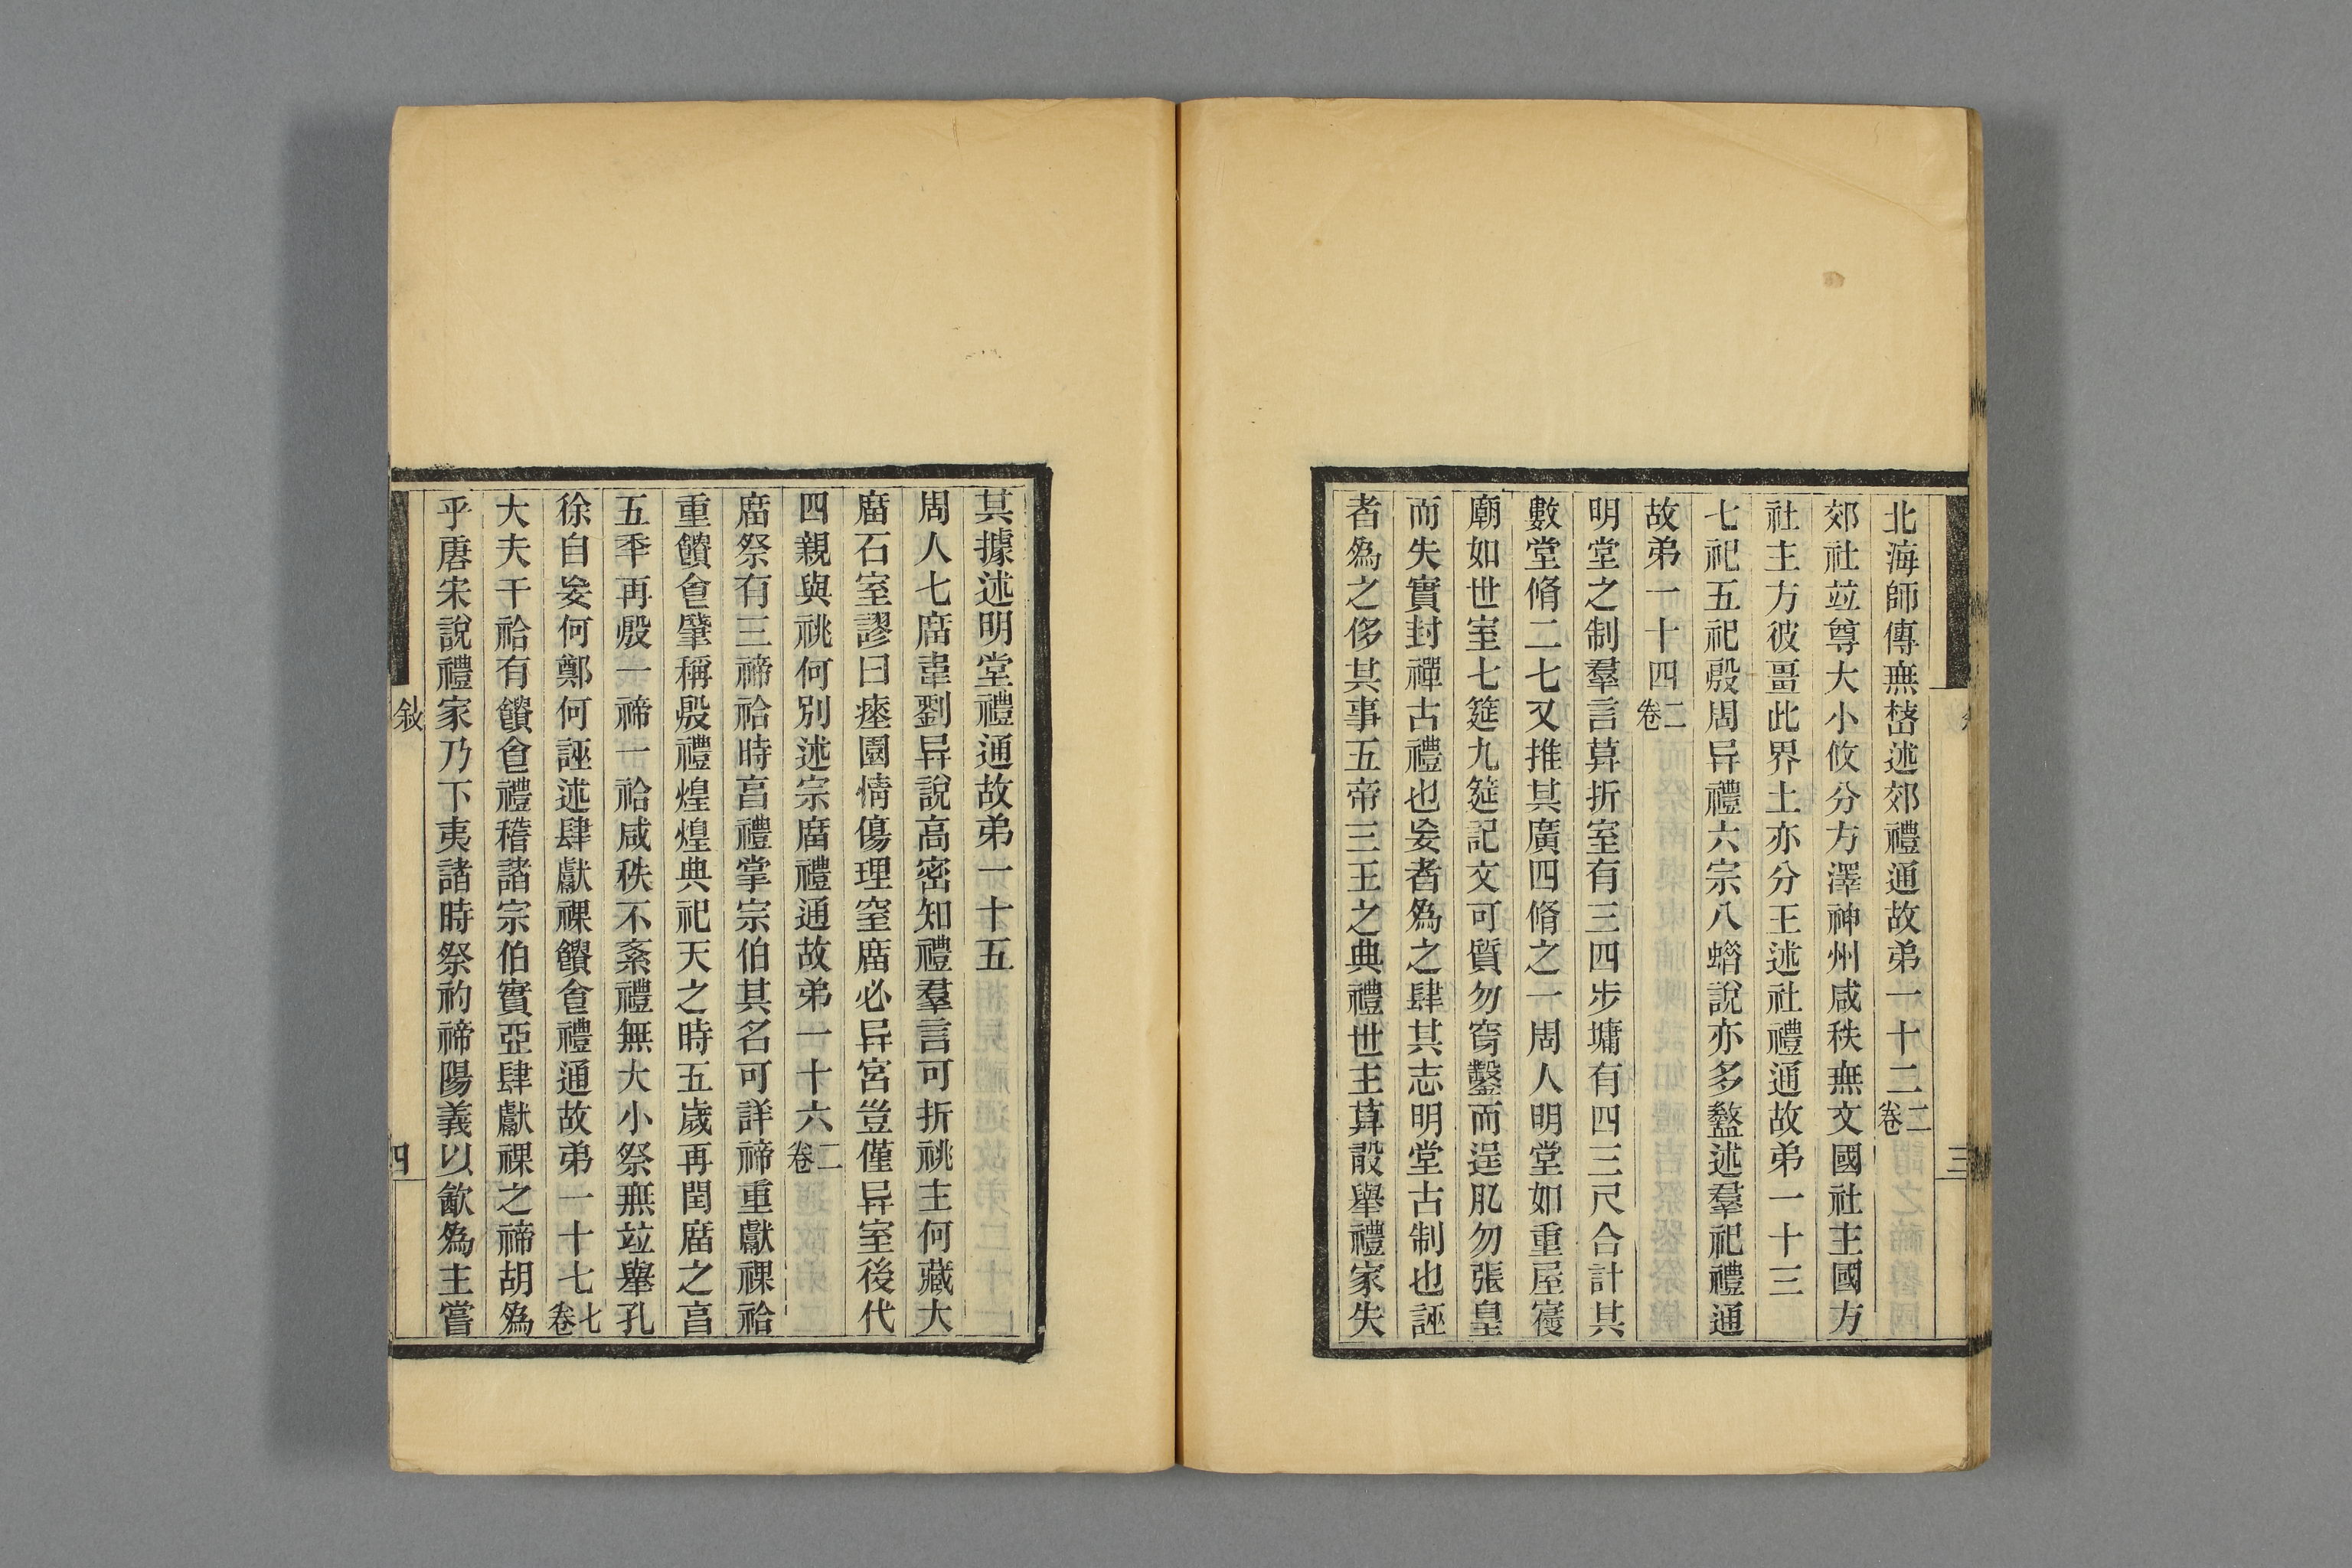 北海師傳無嵆述郊禮通故弟一十二二卷
郊社竝尊大小攸分方澤神州咸秩無文國社主國方
社主方彼畺此界土亦分王述社禮通故弟一十三
七祀五祀殷周异禮六宗八蜡說亦多盭述羣祀禮通
故弟一十四二卷
明堂之制羣言算折室有三四步墉有四三尺合計其
數堂脩二七又推其廣四脩之一周人明堂如重屋寑
廟如世室七筵九筵記文可質勿穿鑿而逞肊勿張皇
而失實封禪古禮也妄者爲之肆其志明堂古制也誣
者爲之侈其事五帝三王之典禮世主算嘏舉禮家失
三
其據述明堂禮通故弟一十五
周人七庿韋劉异說高密知禮羣言可折祧主何藏大
庿石室謬曰瘞園情傷理窒庿必异宮豈僅异室後代
四親與祧何別述宗庿禮通故弟一十六二卷
庿祭有三禘祫時亯禮掌宗伯其名可詳禘重獻祼祫
重饋食肇稱殷禮煌煌典祀天之時五歲再閏庿之亯
五秊再殷一禘一祫咸秩不紊禮無大小祭無竝舉孔
徐自妄何鄭何誣述肆獻祼饋食禮通故弟一十七七卷
大夫干祫有饋食禮稽諸宗伯實亞肆獻祼之禘胡爲
乎唐宋說禮家乃下夷諸時祭礿禘陽義以歙爲主嘗
敍
四